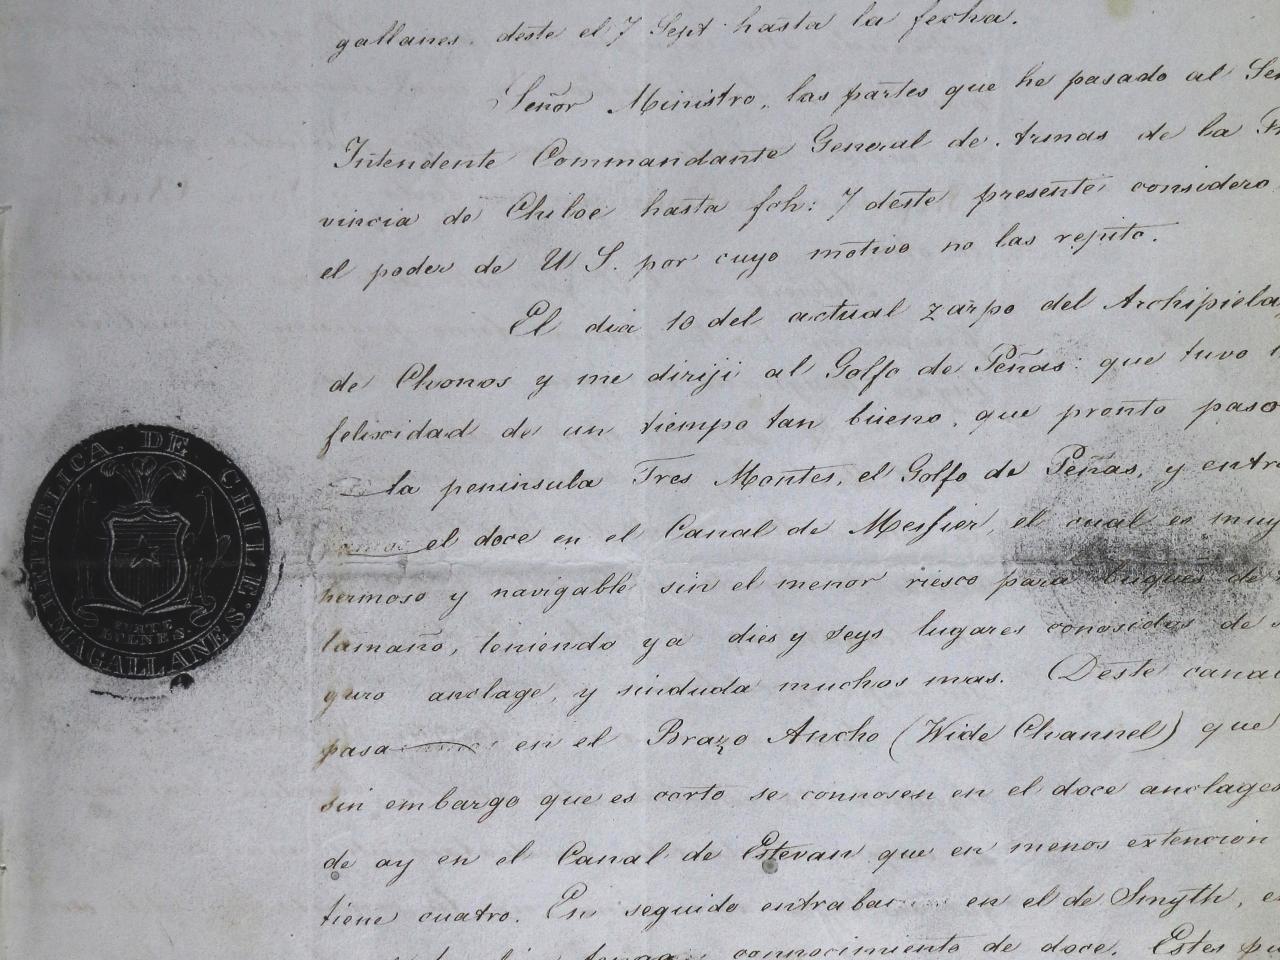 gallanes. deste el 7 Sept hasta la fecha.
Señor Ministro, las partes que he pasado al Señ
Intendente Commandante General de Armas de la Pr
vincia de Chiloe hasta fch: 7 deste presente considero
el poder de U S. por cuyo motivo no las repito.
El dia 10 del actual zarpo del Archipiela
de Chonos y me diriji al Golfo de Peñas: que tuvo
felicidad de un tiempo tan bueno, que pronto paso
la peninsula Tres Montes, el Golfo de Peñas, y entr
el doce en el Canal de Messier, el cual es muy
hermoso y navigable sin el menor riesco para buques de
tamaño, teniendo ya dies y seys lugares conosidos de
guro anclage, y sinduda muchos mas. Deste canal
pasa en el Brazo Ancho (Wide Channel) que
sin embargo que es corto se connosen en el doce anclages
de ay en el Canal de Estevan que en menos extencion
tiene cuatro. En seguido entraba en el de Smyth, e
connocimiento de doce. Estes
REPUBLICA. DE CHILE'S
MAGALLANE'S
BULNES